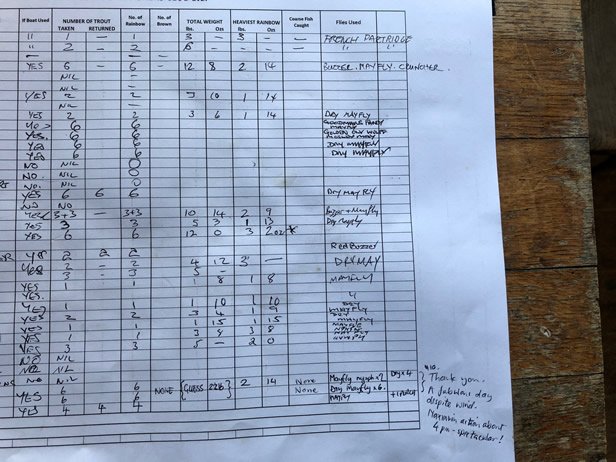 If Boat Used NUMBER OF TROUT No. of Rainbow No. of Brown TOTAL WEIGHT HEAVIEST RAINBOW Coarse Fish Caught Flies Used
TAKEN RETURNED lbs. Ozs lbs. Ozs
" 1 - 1 3 - 3 - FRENCH PARTRIDGE
" 2 - 2 6 - " "
YES 6 - 6 - 12 8 2 14 BUZZER. MAYFLY. CRUNCHER
NIL -
NIL -
YES 2 - 2 3 10 1 14
NIL -
YES 2 2 3 6 1 14 DRY MAYFLY
6 6
YES. 6 6
YES 6 6 DRY MAYFLY
YES 6 6 DRY MAYFLY
NO NIL 0
NO. NIL 0
NO. NIL 0
YES 6 6 6 DRY MAY FLY
NO NO
YES 3+3 - 3+3 10 14 2 9 Buzzer + Mayfly
YES 3 3 5 3 1 13 Dry Mayfly
YES 6 6 12 0 3 2oz *
Red Buzzer
YES 2 2 2
2 - 2 4 12 3 - DRY MAY
YES 3 - 3 5 -
YES 1 1 1 8 1 8 MAYFLY
YES.
YES 1 1 1 10 1 10 DRY
YES 2 2 3 4 1 9 MAYFLY
YES 1 1 1 15 1 15 MAYFLY
YES 1 1 3 8 3 8
YES 3 3 5 - 2 0
NO NIL
NIL
NO NIL Dry x 4
6 6 NONE GUESS 22lb 2 14 None Mayfly nymph x 2
YES 6 6 None Dry Mayfly x 6.
YES 4 4 4
Thank you.
A fabulous day
dispite wind.
action about
4 pm - spectacular!